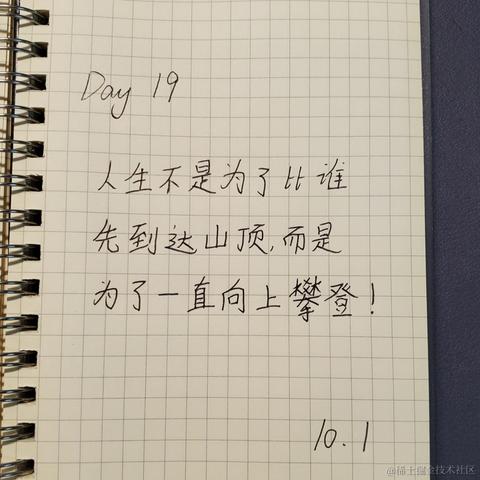 Day 19
人生不是为了比谁
先到达山顶,而是
为了一直向上攀登!
10.1
@稀土掘金技术社区